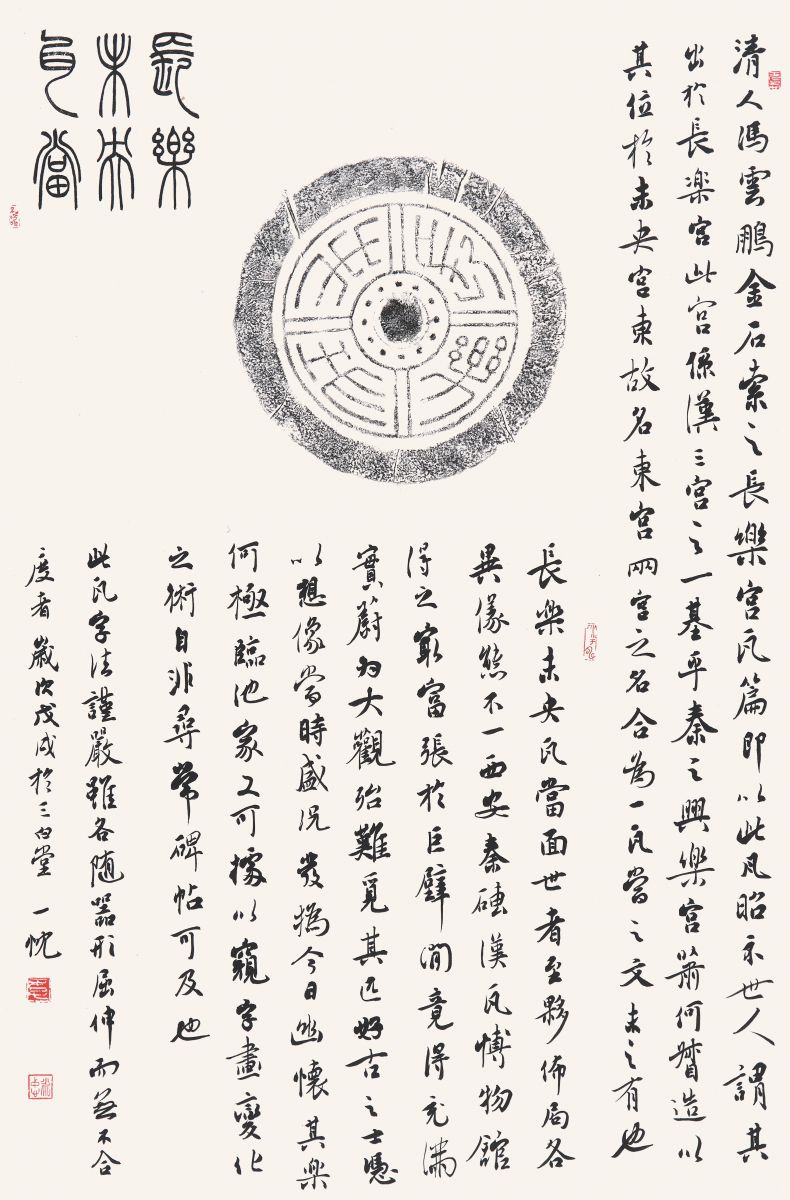 長樂
未央
瓦當
清人馮雲鵬金石索之長樂宮瓦篇即以此瓦昭示世人謂其
出於長樂宮此宮係漢三宮之一基乎秦之興樂宮蕭何督造以
其位於未央宮東故名東宮兩宮之名合為一瓦當之文未之有也
長樂未央瓦當面世者至夥佈局各
異儀態不一西安秦磚漢瓦博物館
得之最富張於巨壁間竟得充滿
實蔚為大觀殆難覓其匹好古之士憑
以想像當時盛況發為今日幽懷其樂
何極臨池家又可據以窺字畫變化
之術自非尋常碑帖可及也
此瓦字法謹嚴雖各隨器形屈伸而無不合
度者歲次戊戌於三白堂一忱